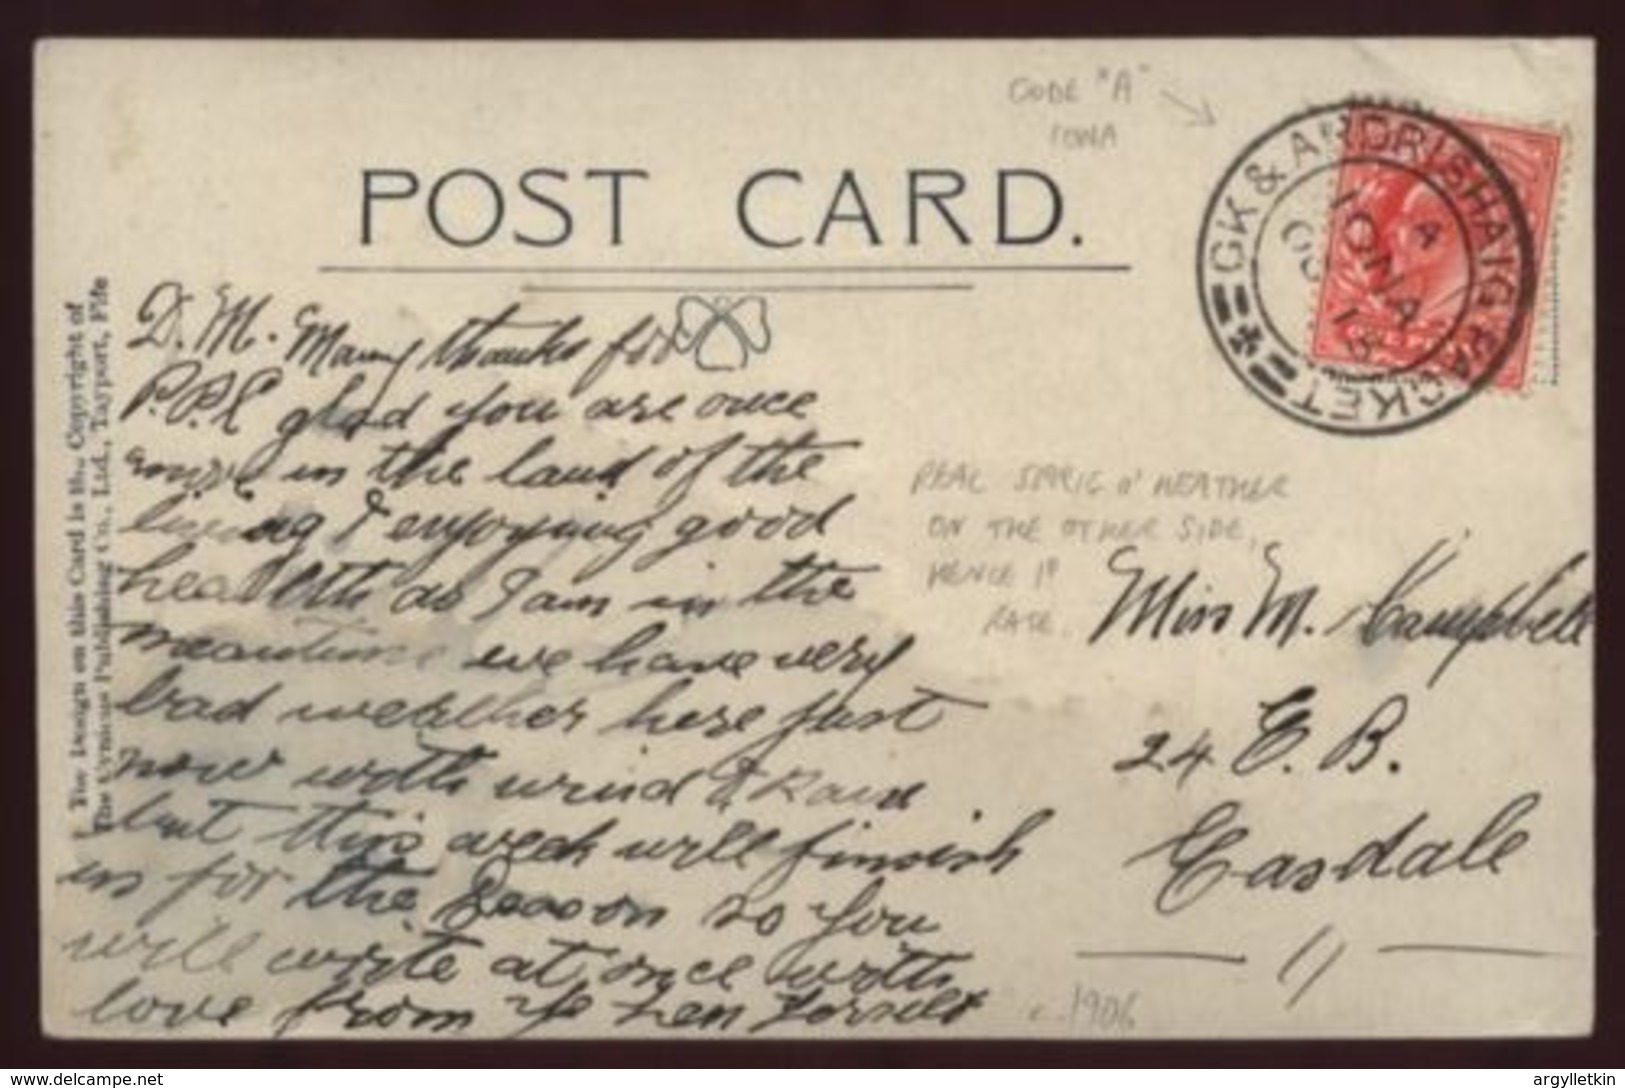 CODE "A"
IONA
POST CARD.
GK & ARDRISHAIG PACKET
A
IONA
OC 13
The Design on this Card is the Copyright of
The Publishing Co., Ltd., Tayport, Fife
D. M. Many thanks for
P.P.C glad you are once
more in the land of the
living & enjoying good
health as I am in the
meantime we have very
bad weather here just
now with wind & Rain
but this week will finnish
us for the Season so you
will write at once with
love from Ye Ken Forsels
REAL SPRIG O' HEATHER
ON THE OTHER SIDE,
HENCE 1D
RATE.
Miss M. Campbell
24 E. B.
Easdale
1906
www.delcampe.net
argylletkin